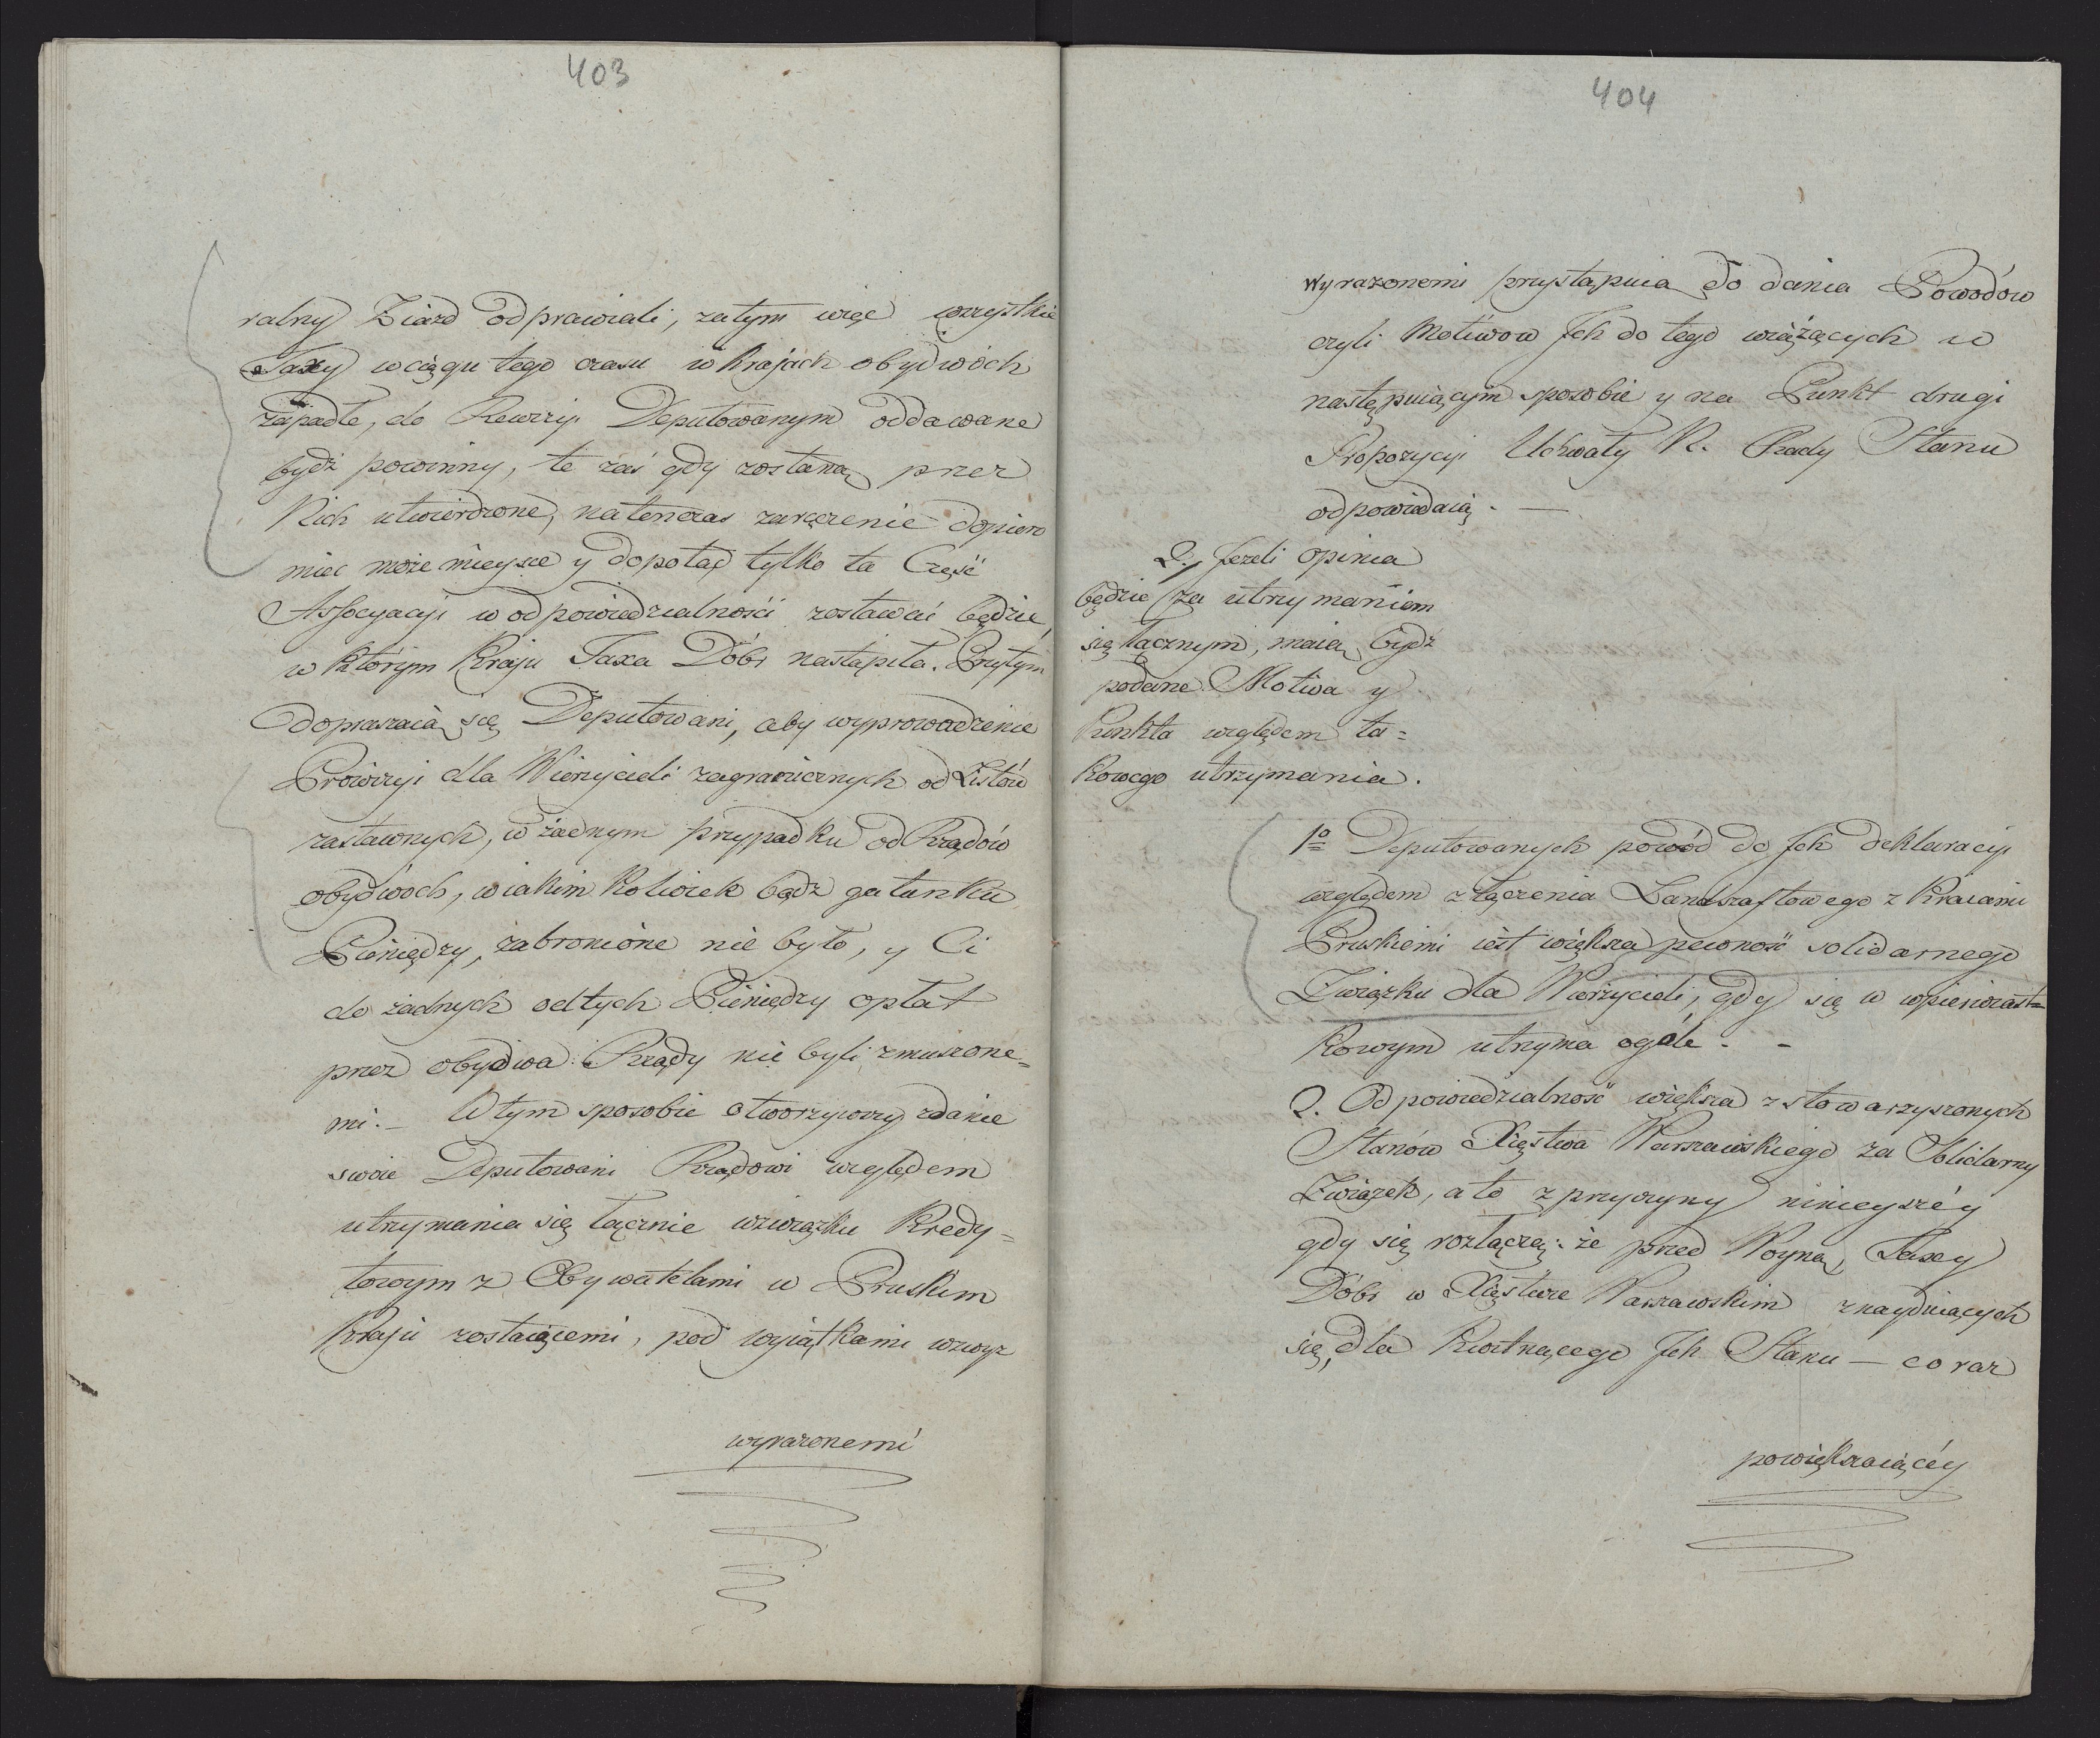 403
ralny Ziazd odprawiali, zatym więc wszystkie
Taxy w ciągu tego czasu w Krajach obydwóch
zapadłe, do Rewizyi Deputowanym oddawane
bydź powinny, te zaś gdy zostaną przez
Nich utwierdzone, natenczas zaręczenie dopiero
mieć może mieysce y dopotąd tylko ta Część
Assocyacyi w odpowiedzialności zostawać będzie,
w którym Kraju Taxa Dóbr nastąpiła. Przytym
dopraszaią się Deputowani, aby wyprowadzenie
Prowizyi dla Wierzycieli zagranicznych od Listów
zastawnych, w żadnym przypadku od Rządów
obydwóch, w iakim kolwiek bądź gatunku
Pieniędzy, zabronione nie było, y Ci
do żadnych od tych Pieniędzy opłat
przez obydwa Rządy nie byli zmuszone=
mi. – W tym sposobie otworzywszy zdanie
swoie Deputowani Rządowi względem
utrzymania się łącznie w związku Kredy=
towym z Obywatelami w Pruskim
Kraju zostaiącemi, pod wyiątkami wzwyż
wyrażonemi
404
wyrażonemi przystąpuią do dania Powodów
czyli Motiwow Ich do tego wiążących w
następuiącym sposobie y na Punkt drugi
Propozycyi Uchwały R. Rady Stanu
odpowiedaią. —
2. Jezeli opinia
będzie za utrzymaniem
się łącznym, maią bydź
podane Motiva y
Punkta względem ta=
kowego utrzymania.
1º Deputowanych powód do Ich deklaracyi
względem złączenia Landszaftowego z Kraiami
Pruskiemi iest większa pewność solidarnego
Związku dla Wierzycieli, gdy się w wpierwiast=
kowym utrzyma ogóle. –
2. Odpowiedzialność większa zstowarzyszonych
Stanów Xięstwa Warszawskiego za Solidarny
Związek, a to z przyczyny ninieyszéy
gdy się rozłączą: że przed Woyną, Taxy
Dóbr w Xięstwie Warszawskim znayduiących
się, dla kwitnącego Ich Stanu — coraz
powiększaiącéy